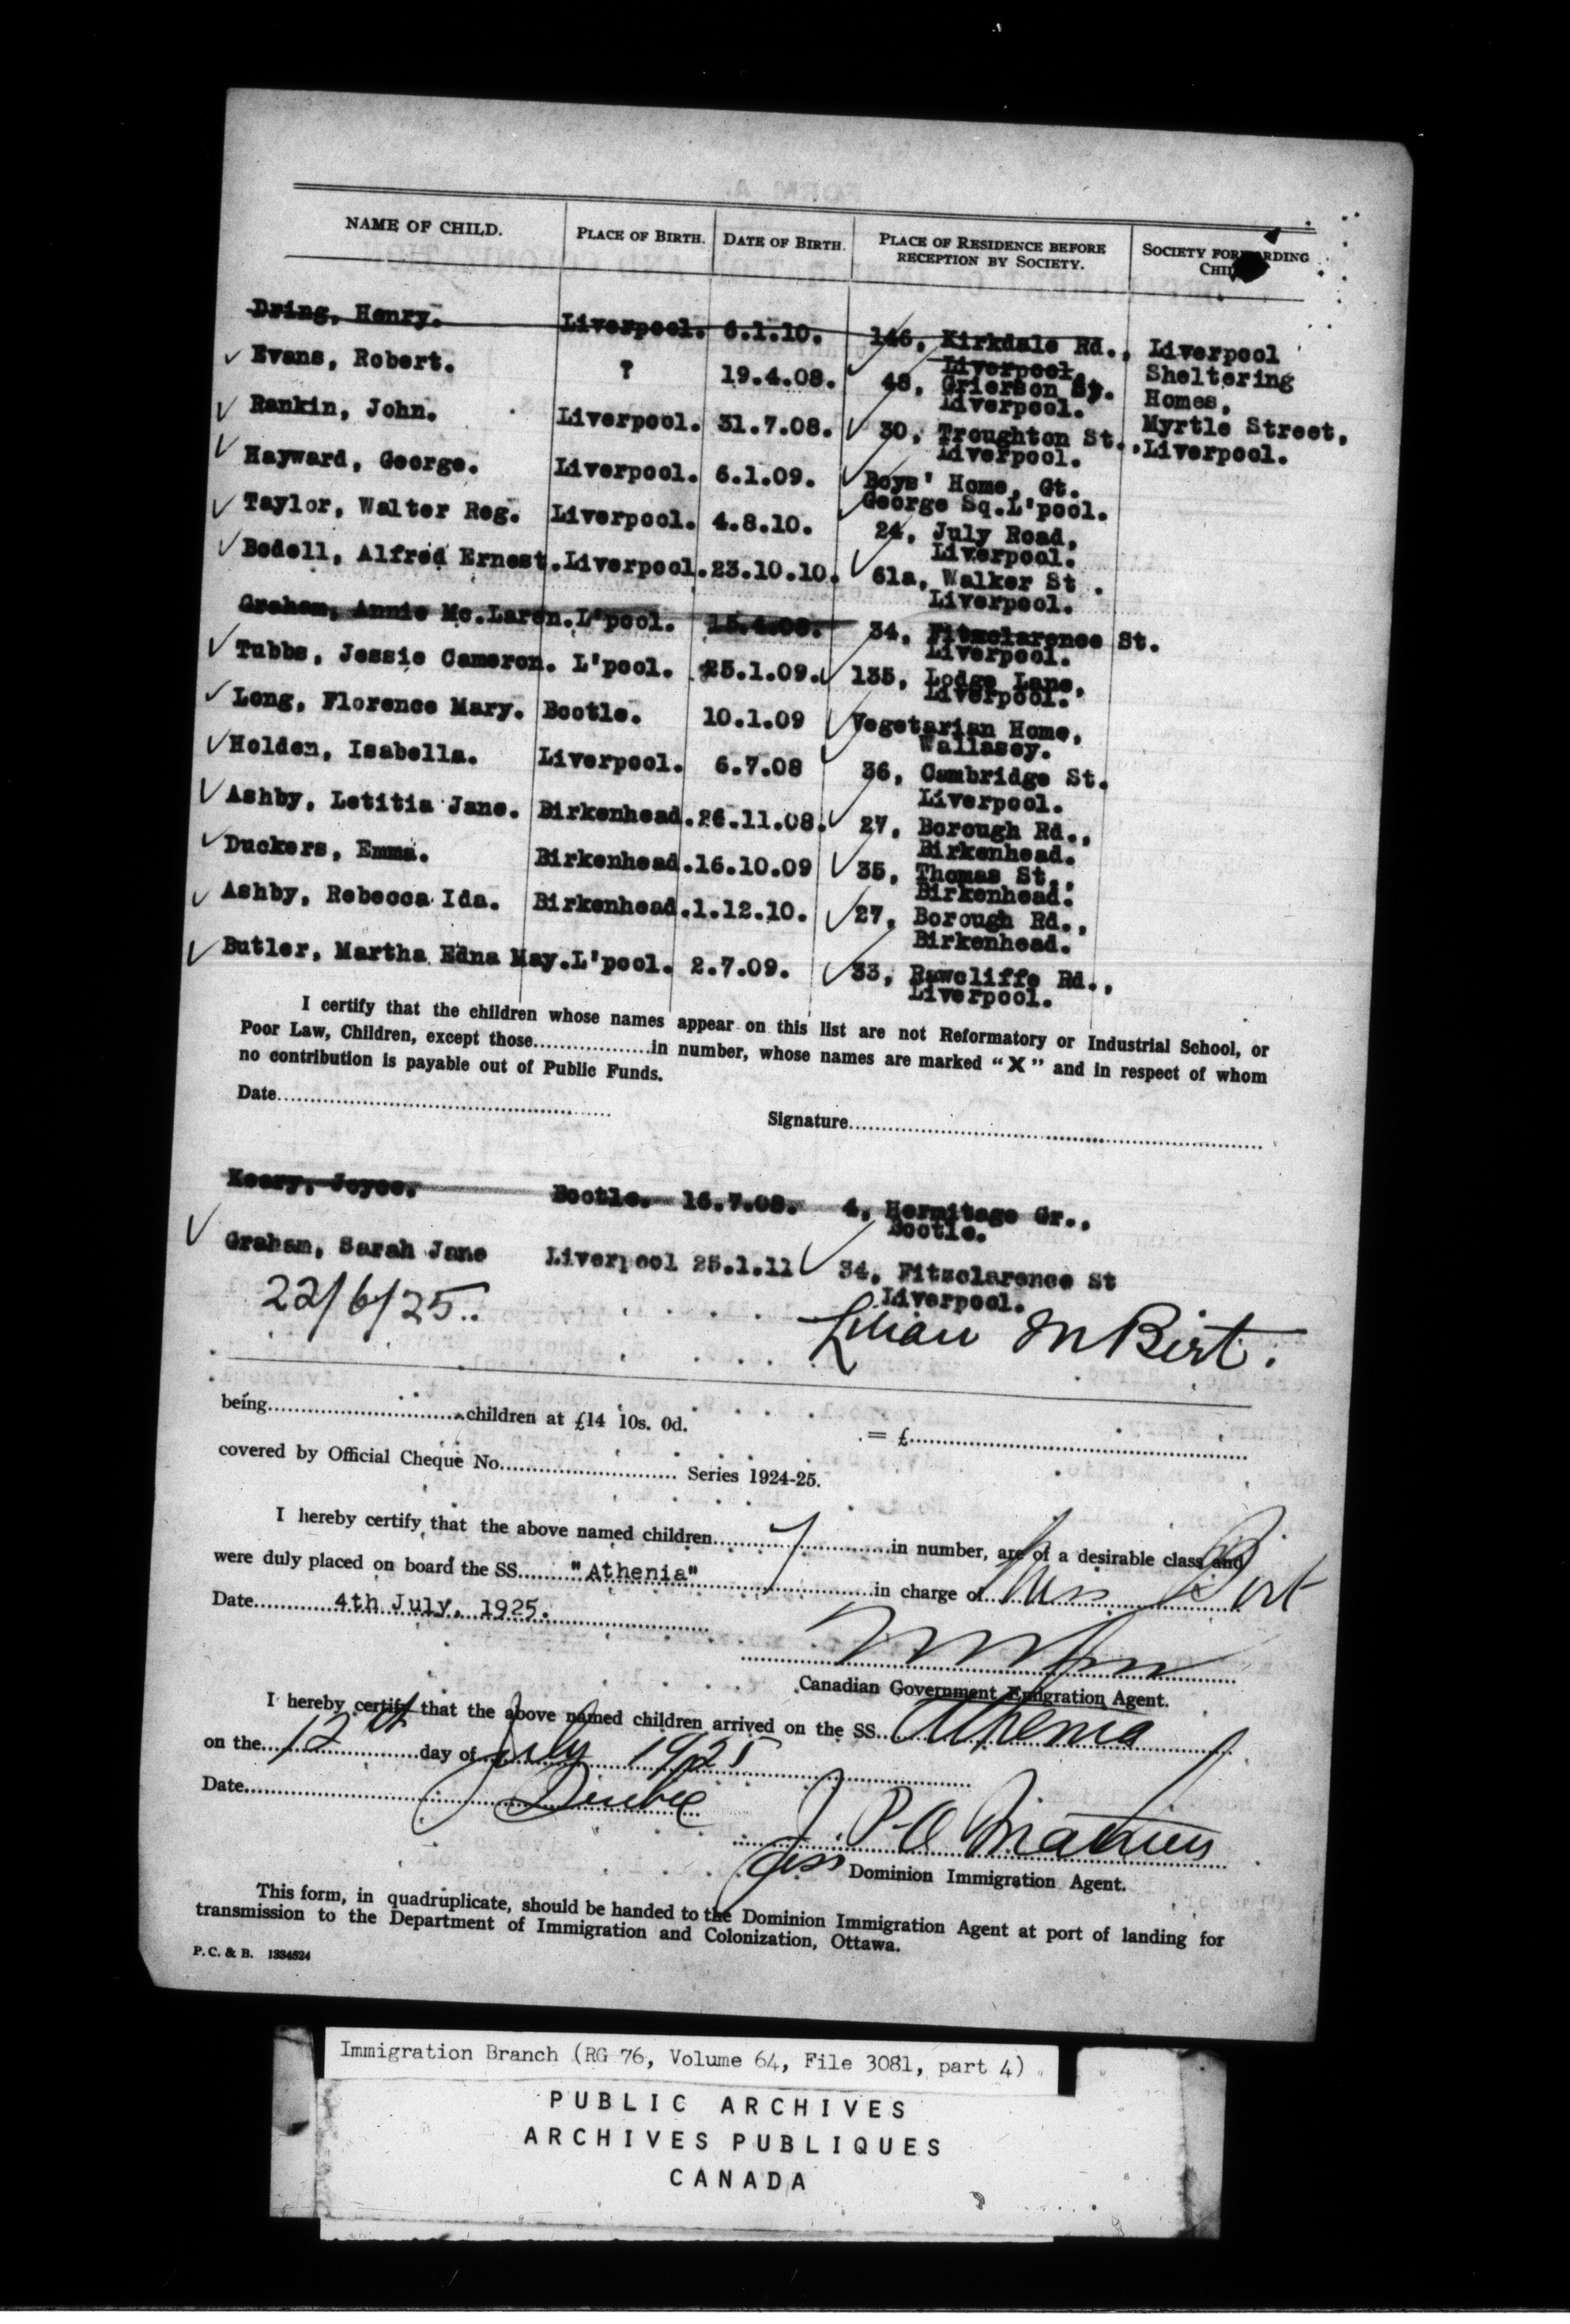 NAME OF CHILD. PLACE OF BIRTH. DATE OF BIRTH. PLACE OF RESIDENCE BEFORE RECEPTION BY SOCIETY. SOCIETY FORWARDING CHILD
Dring, Henry. Liverpool. 6.1.10. 146, Kirkdale Rd., Liverpool
Liverpool.
✓ Evans, Robert. ? 19.4.08. ✓ 48, Grierson St. Sheltering
Liverpool. Homes,
✓ Rankin, John. Liverpool. 31.7.08. ✓ 30, Troughton St., Myrtle Street,
Liverpool. Liverpool.
✓ Hayward, George. Liverpool. 6.1.09. ✓ Boys' Home, Gt.
George Sq. L'pool.
✓ Taylor, Walter Reg. Liverpool. 4.8.10. ✓ 24, July Road,
Liverpool.
✓ Bedell, Alfred Ernest. Liverpool. 23.10.10. ✓ 61a, Walker St .
Liverpool.
Graham, Annie Mc.Laren. L'pool. 15.4.08. 34, Fitzclarence St.
Liverpool.
✓ Tubbs, Jessie Cameron. L'pool. 25.1.09. ✓ 135, Lodge Lane,
Liverpool.
✓ Long, Florence Mary. Bootle. 10.1.09 ✓ Vegetarian Home,
Wallasey.
✓ Holden, Isabella. Liverpool. 6.7.08 ✓ 36, Cambridge St.
Liverpool.
✓ Ashby, Letitia Jane. Birkenhead. 26.11.08. ✓ 27, Borough Rd.,
Birkenhead.
✓ Duckers, Emma. Birkenhead. 16.10.09 ✓ 35, Thomas St.,
Birkenhead.
✓ Ashby, Rebecca Ida. Birkenhead. 1.12.10. ✓ 27, Borough Rd.,
Birkenhead.
✓ Butler, Martha Edna May. L'pool. 2.7.09. ✓ 33, Rawcliffe Rd.,
Liverpool.
I certify that the children whose names appear on this list are not Reformatory or Industrial School, or
Poor Law, Children, except those..................in number, whose names are marked "X" and in respect of whom
no contribution is payable out of Public Funds.
Date..................................................
Signature..................................................
Keery, Joyce. Bootle. 16.7.08. 4, Hermitage Gr.,
Bootle.
✓ Graham, Sarah Jane Liverpool 25.1.11 ✓ 34, Fitzclarence St
Liverpool.
22/6/25. Lilian M Birt.
being..............................children at £14 10s. 0d. = £..................................................
covered by Official Cheque No........................... Series 1924-25.
I hereby certify that the above named children...........................in number, are of a desirable class and
were duly placed on board the SS........."Athenia"...........................in charge of Miss Birt
Date............4th July, 1925.
Canadian Government Emigration Agent.
I hereby certify that the above named children arrived on the SS. Athenia
on the 12th day of July 1925
Date.............. Quebec
Dominion Immigration Agent.
This form, in quadruplicate, should be handed to the Dominion Immigration Agent at port of landing for
transmission to the Department of Immigration and Colonization, Ottawa.
P. C. & B. 1334524
Immigration Branch (RG 76, Volume 64, File 3081, part 4)
PUBLIC ARCHIVES
ARCHIVES PUBLIQUES
CANADA